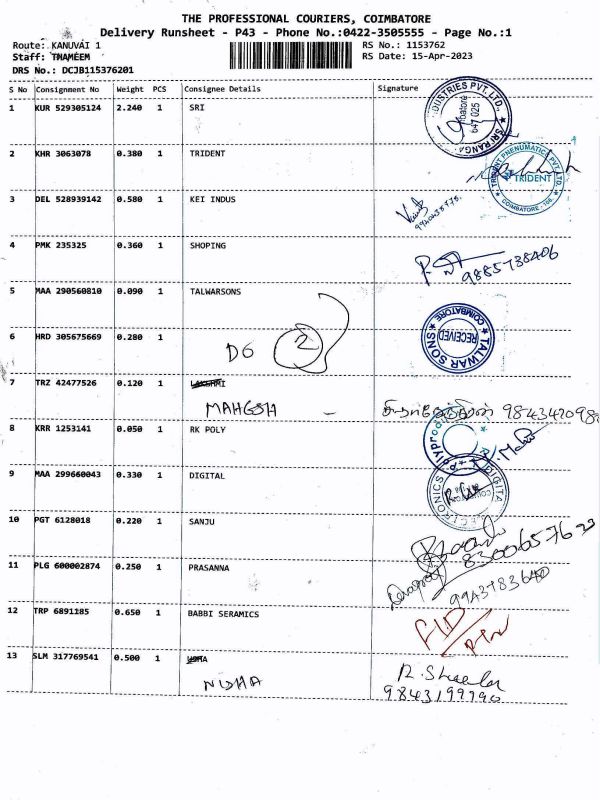 THE PROFESSIONAL COURIERS, COIMBATORE
Delivery Runsheet - P43 - Phone No.:0422-3505555 - Page No.:1
Route: KANUVAI 1 RS No.: 1153762
Staff: THAMEEM RS Date: 15-Apr-2023
DRS No.: DCJB115376201
S No Consignment No Weight PCS Consignee Details Signature
1 KUR 529305124 2.240 1 SRI
DUSTRIES PVT. LTD., SRI RANGA 641 025
2 KHR 3063078 0.380 1 TRIDENT
TRIDENT PNEUMATICS PVT. LTD. TRIDENT COIMBATORE
3 DEL 528939142 0.580 1 KEI INDUS
4 PMK 235325 0.360 1 SHOPING
9885738406
5 MAA 290560810 0.090 1 TALWARSONS
TALWAR SONS COIMBATORE RECEIVED
6 HRD 305675669 0.280 1
DG 2
7 TRZ 42477526 0.120 1 LAKSHMI
MAHGSH -
8 KRR 1253141 0.050 1 RK POLY
9 MAA 299660043 0.330 1 DIGITAL
DIGITA ELECTRONICS
10 PGT 6128018 0.220 1 SANJU
11 PLG 600002874 0.250 1 PRASANNA
9943783640
12 TRP 6891285 0.650 1 BABBI SERAMICS
13 SLM 317769541 0.500 1 USHA
NUSHA
9843199790